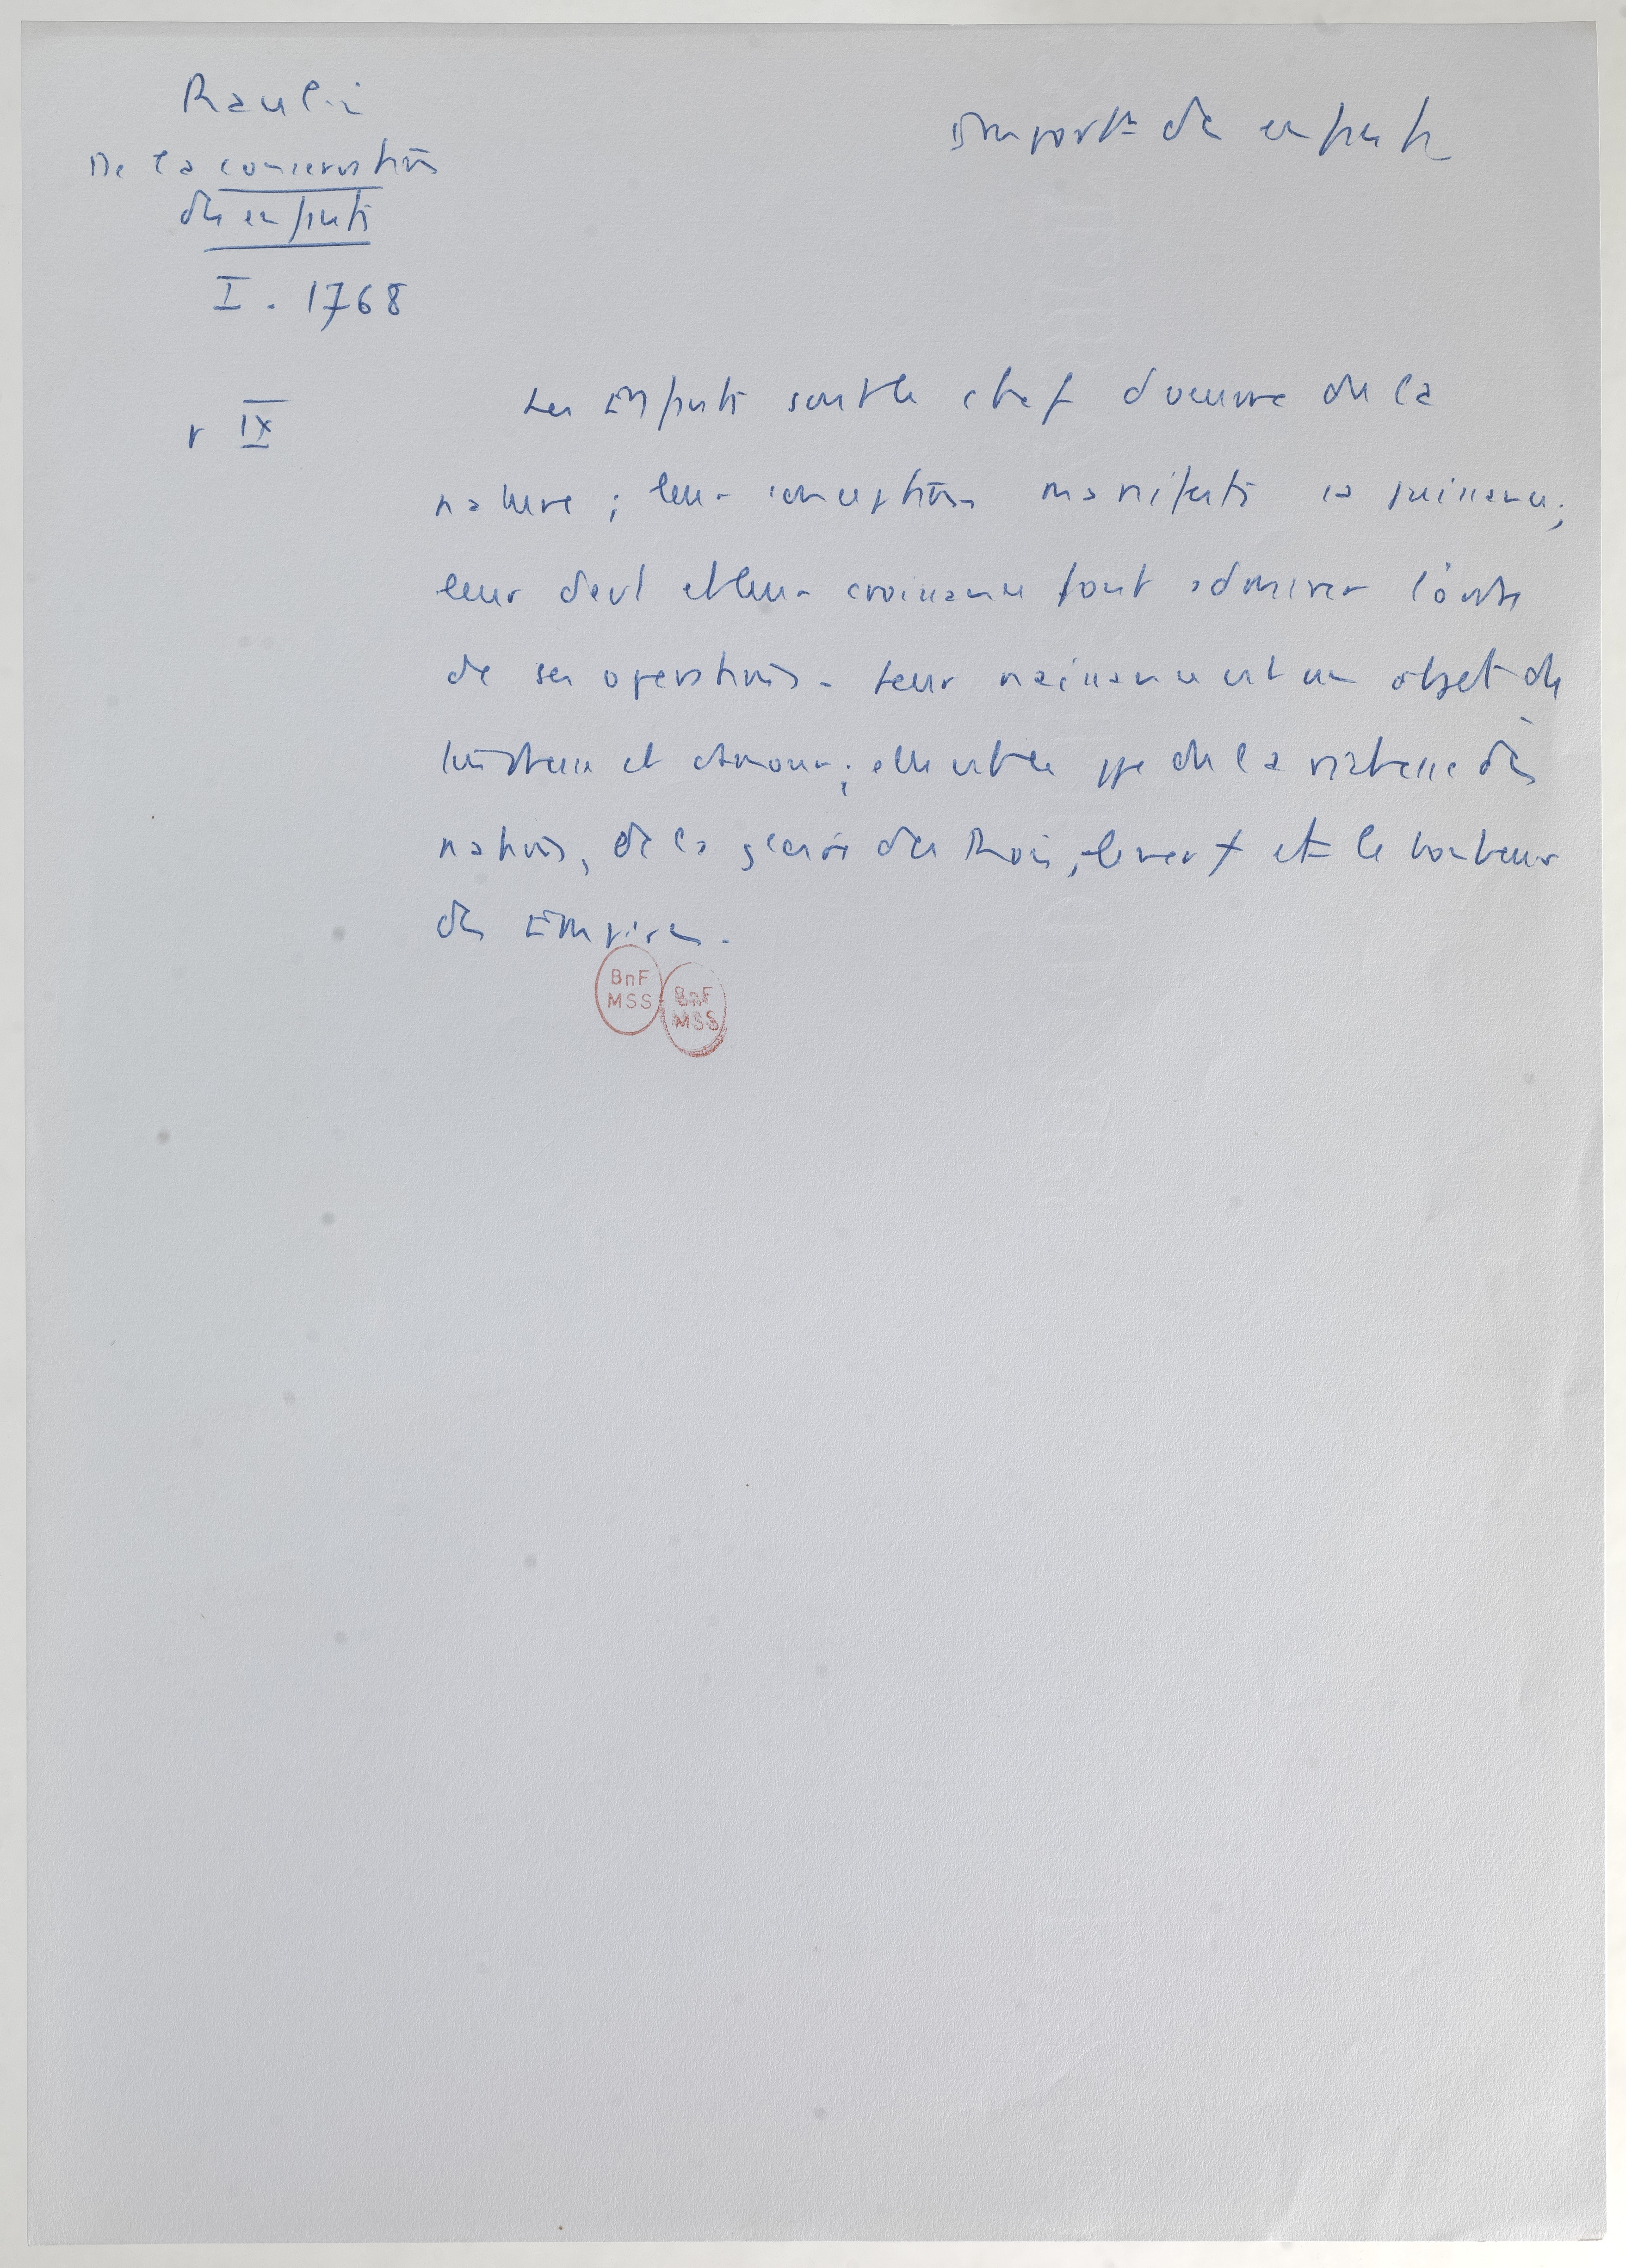 Raulin
De la conservation
des enfants
I. 1768
Import^ce des enfants
p IX
Les Enfants sont le chef d'oeuvre de la
nature ; leur conception manifeste sa puissance ;
leur devt et leur croissance font admirer l'ordre
de ses opérations. Leur naissance est un objet de
et d'amour ; elle est le ppe de la richesse des
nations, de la gloire des Rois, et le bonheur
des Empires.
BnF
MSS
BnF
MSS